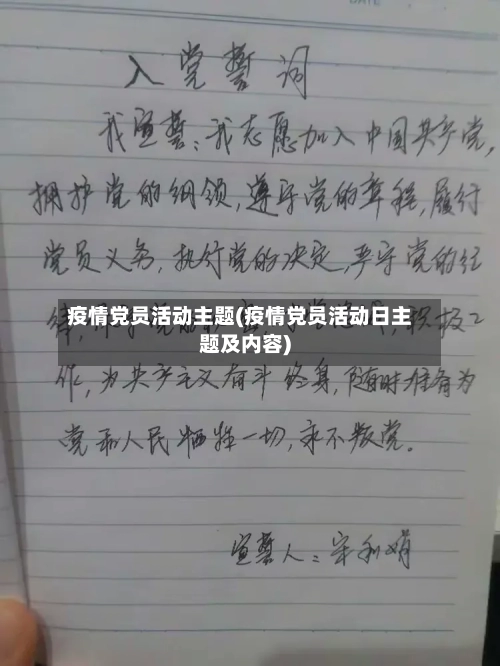 DATE
入党誓词
我宣誓：我志愿加入中国共产党，
拥护党的纲领，遵守党的章程，履行
党员义务，执行党的决定，严守党的纪
律，积极工
疫情党员活动主题(疫情党员活动日主
题及内容)
作，为共产主义奋斗终身，随时准备为
党和人民牺牲一切，永不叛党。
宣誓人：宋利娟